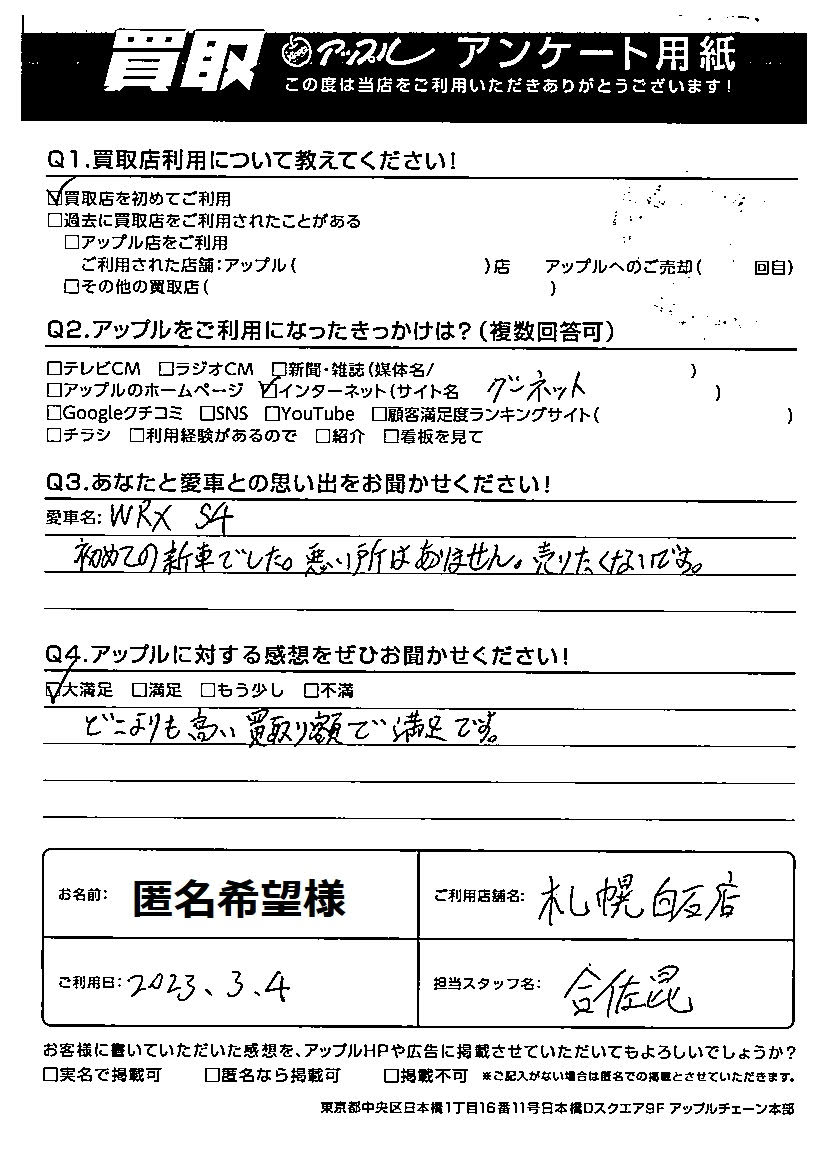 買取 アップル アンケート用紙
この度は当店をご利用いただきありがとうございます!
Q1.買取店利用について教えてください!
☑買取店を初めてご利用
□過去に買取店をご利用されたことがある
□アップル店をご利用
ご利用された店舗:アップル( )店 アップルへのご売却( 回目)
□その他の買取店( )
Q2.アップルをご利用になったきっかけは?(複数回答可)
□テレビCM □ラジオCM □新聞・雑誌(媒体名/ )
□アップルのホームページ ☑インターネット(サイト名 グーネット )
□Googleクチコミ □SNS □YouTube □顧客満足度ランキングサイト( )
□チラシ □利用経験があるので □紹介 □看板を見て
Q3.あなたと愛車との思い出をお聞かせください!
愛車名: WRX S4
初めての新車でした。悪い所はありません。売りたくないです。
Q4.アップルに対する感想をぜひお聞かせください!
☑大満足 □満足 □もう少し □不満
どこよりも高い買取り額で満足です。
お名前: 匿名希望様 ご利用店舗名: 札幌白石店
ご利用日: 2023、3、4 担当スタッフ名:
お客様に書いていただいた感想を、アップルHPや広告に掲載させていただいてもよろしいでしょうか?
□実名で掲載可 □匿名なら掲載可 □掲載不可 ※ご記入がない場合は匿名での掲載とさせていただきます。
東京都中央区日本橋1丁目16番11号日本橋Dスクエア9F アップルチェーン本部